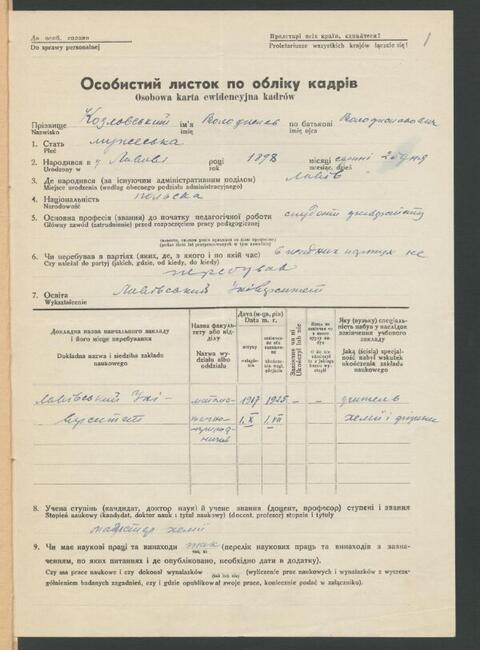 До особ. справи
Do sprawy personalnej
Пролетарі всіх країн, єднайтеся!
Proletariusze wszystkich krajów łączcie się!
1
Особистий листок по обліку кадрів
Osobowa karta ewidencyjna kadrów
Прізвище Козловський ім'я Володислав по батькові Володиславович
Nazwisko imię imię ojca
1. Стать мужеська
Płeć
2. Народився у Львові році 1898 місяці день
Urodzony w roku miesiąc, dzień
3. Де народився (за існуючим адміністративним поділом) Львів
Miejsce urodzenia (według obecnego podziału administracyjnego)
4. Національність польська
Narodowość
5. Основна професія (звання) до початку педагогічної роботи студент університету
Główny zawód (zatrudnienie) przed rozpoczęciem pracy pedagogicznej
6. Чи перебував в партіях (яких, де, з якого і по який час) в жодних партіях не
Czy należał do partyj (jakich, gdzie, od kiedy, do kiedy)
перебував
7. Освіта Львівський Університет
Wykształcenie
Докладна назва навчального закладу і його місце перебування
Dokładna nazwa i siedziba zakładu naukowego
Назва факультету або відділу
Nazwa wydziału albo oddziału
Дата (м-ць, рік)
Data m. r.
вступу
Закінчив чи ні
Ukończył lub nie
Яку (вузьку) спеціальність набув у наслідок закінчення учбового закладу
Jaką (ścisłą) specjalność nabył wskutek ukończenia zakładu naukowego
Львівський Уні- 1917 1925 учитель
верситет 1.X 1.VII хемії і фізики
8. Учена ступінь (кандидат, доктор наук) й учене звання (доцент, професор) ступені і звання
Stopień naukowy (kandydat, doktor nauk i tytuł naukowy) (docent, profesor) stopnia i tytuły
магістер хемії
9. Чи має наукові праці та винаходи так (перелік наукових праць та винаходів з зазначенням,
так, ні
по яких питаннях і де опубліковано, необхідно дати в додатку).
Czy ma prace naukowe i czy dokonał wynalazków (wyliczenie prac naukowych i wynalazków z wyszczególnieniem
(tak lub nie)
badanych zagadnień, czy i gdzie opublikował swoje prace, koniecznie podać w załączniku).